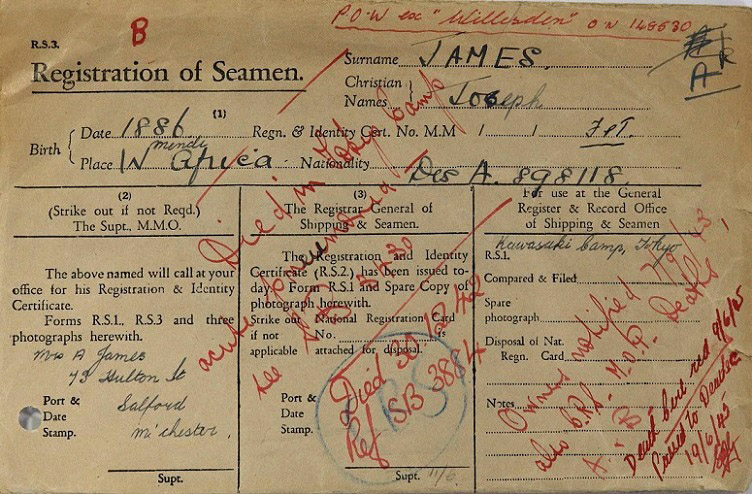 P.O.W ex "Willesden" O N 148530
R.S.3.
B
Registration of Seamen.
Surname JAMES.
Christian Names Joseph
A
R
(1)
Birth { Date 1886 Regn. & Identity Cert. No. M.M / /
mendi
Place W Africa. Nationality Dis A. 898118.
Died in Toky Camp
acute
see
(2)
(Strike out if not Reqd.)
The Supt., M.M.O.
The above named will call at your
office for his Registration & Identity
Certificate.
Forms R.S.1., R.S.3 and three
photographs herewith.
Mrs A James
43 Hulton St
Salford
M'chester.
Port &
Date
Stamp.
Supt.
(3)
The Registrar General of
Shipping & Seamen.
The Registration and Identity
Certificate (R.S.2.) has been issued to-
day. Form R.S.1 and Spare Copy of
photograph herewith.
Strike out National Registration Card
if not No. is
applicable attached for disposal.
Died 30.12.42
Ref SB 3884
RS
Port &
Date
Stamp.
Supt. 11/6.
For use at the General
Register & Record Office
of Shipping & Seamen
Kawasaki Camp, Tokyo
R.S.1.
Compared & Filed
Spare
photograph
Disposal of Nat.
Regn. Card
Notes
Owners notified 7/9/43
also M.O.P. Deaths
Death cert recd 9/6/45
Passed to Deaths
19/6/45